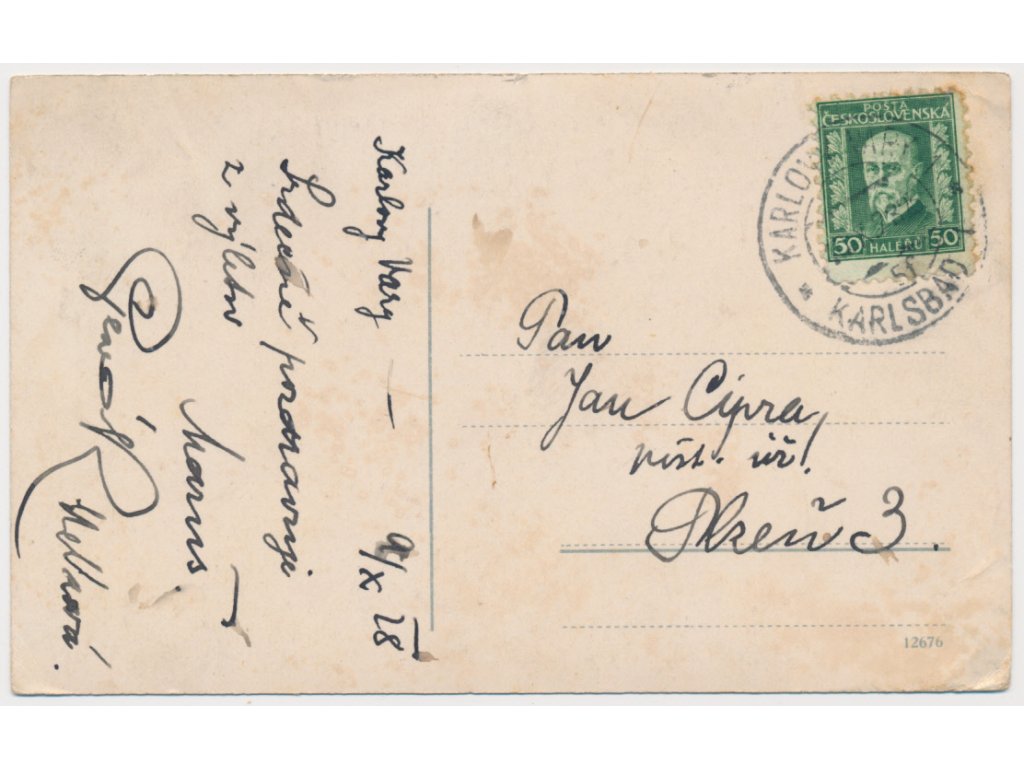 Karlovy Vary – 9/X 28
Srdečně pozdravuji
z výletu
Marus.
POŠTA
ČESKOSLOVENSKÁ
50 HALÉŘŮ 50
KARLOVY VARY
* KARLSBAD
Pan
Jan Cipra,
pošt. úř.
Plzeň 3.
12676